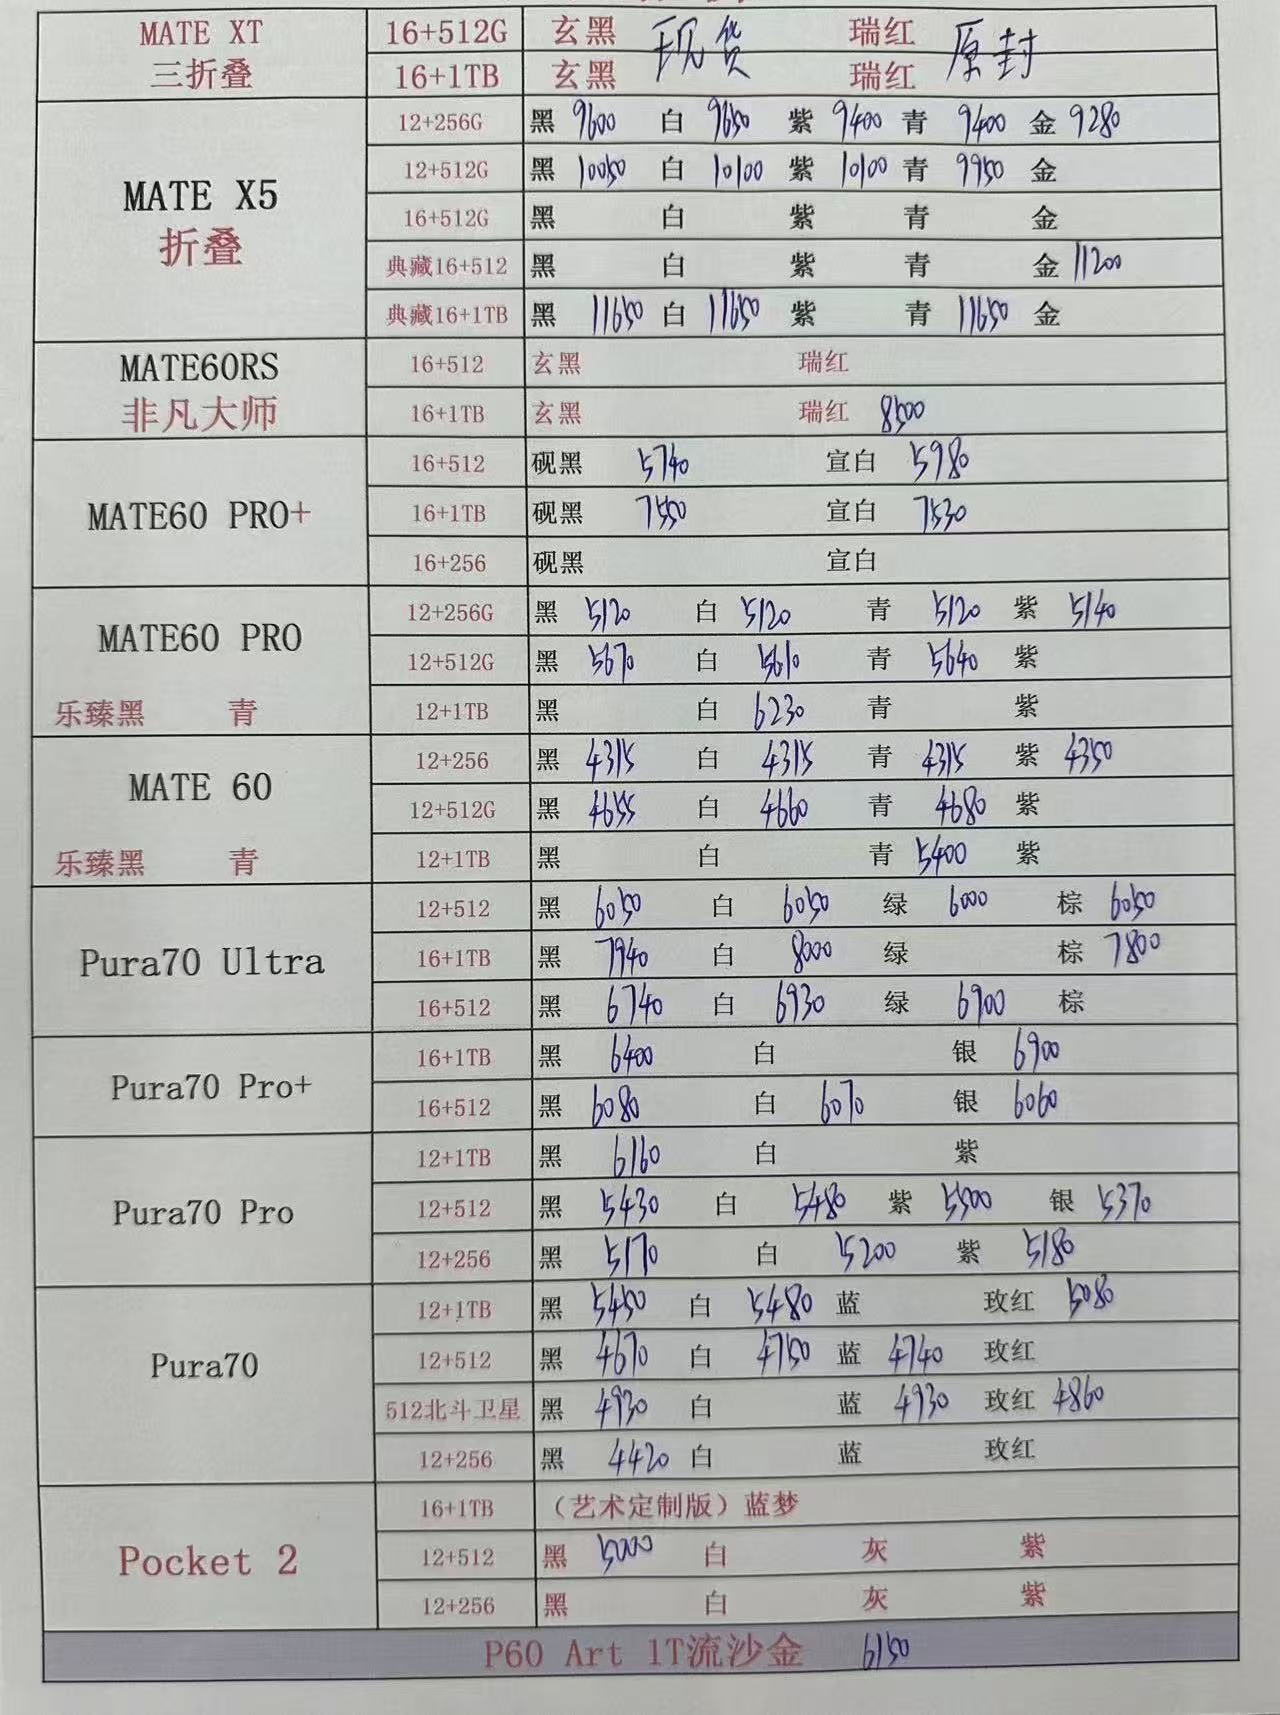 MATE XT 16+512G 玄黑 现货 瑞红 原封
三折叠 16+1TB 玄黑 瑞红
12+256G 黑 9600 白 9650 紫 9400 青 9400 金 9280
12+512G 黑 10050 白 10100 紫 10100 青 9950 金
MATE X5 16+512G 黑 白 紫 青 金
折叠 典藏16+512 黑 白 紫 青 金 11200
典藏16+1TB 黑 11650 白 11650 紫 青 11650 金
MATE60RS 16+512 玄黑 瑞红
非凡大师 16+1TB 玄黑 瑞红 8500
16+512 砚黑 5740 宣白 5980
MATE60 PRO+ 16+1TB 砚黑 7550 宣白 7530
16+256 砚黑 宣白
12+256G 黑 5120 白 5120 青 5120 紫 5140
MATE60 PRO 12+512G 黑 5670 白 5610 青 5640 紫
乐臻黑 青 12+1TB 黑 白 6230 青 紫
12+256 黑 4315 白 4315 青 4315 紫 4350
MATE 60 12+512G 黑 4655 白 4660 青 4680 紫
乐臻黑 青 12+1TB 黑 白 青 5400 紫
12+512 黑 6050 白 6050 绿 6000 棕 6050
Pura70 Ultra 16+1TB 黑 7940 白 8000 绿 棕 7800
16+512 黑 6740 白 6930 绿 6900 棕
Pura70 Pro+ 16+1TB 黑 6400 白 银 6900
16+512 黑 6080 白 6070 银 6060
12+1TB 黑 6160 白 紫
Pura70 Pro 12+512 黑 5430 白 5480 紫 5500 银 5370
12+256 黑 5170 白 5200 紫 5180
12+1TB 黑 5450 白 5480 蓝 玫红 5080
Pura70 12+512 黑 4670 白 4750 蓝 4740 玫红
512北斗卫星 黑 4930 白 蓝 4930 玫红 4860
12+256 黑 4420 白 蓝 玫红
16+1TB （艺术定制版）蓝梦
Pocket 2 12+512 黑 5000 白 灰 紫
12+256 黑 白 灰 紫
P60 Art 1T流沙金 6150